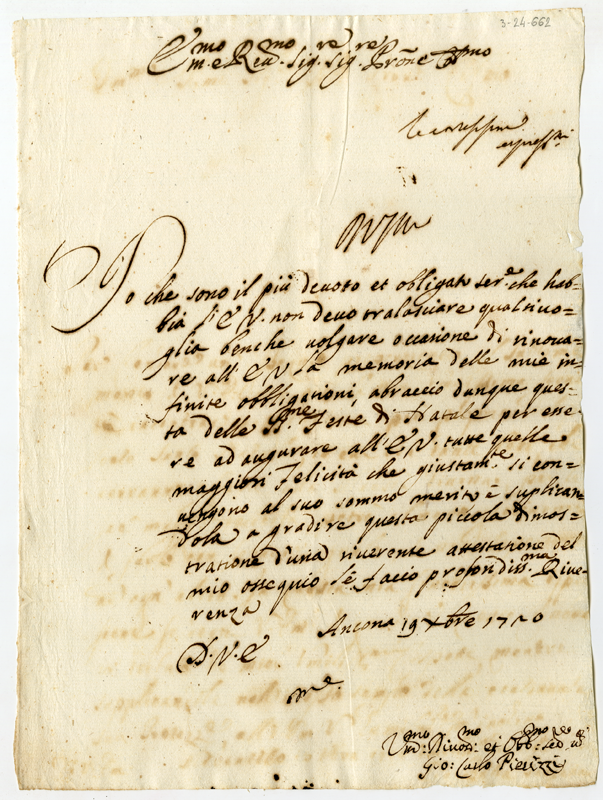 3-24-662
Em.mo e Rev.mo Sig.re Sig.re Pron.e Col.mo
Io che sono il più devoto et obligato ser.e che hab=
bia l'E V. non devo tralasciare qualsivo=
glia benche volgare occasione di rinova=
re all'E V la memoria delle mie in=
finite obbligationi, abraccio dunque ques=
ta delle S.me Feste di Natale per esse=
re ad augurare all'E V. tutte quelle
maggiori Felicità che giustam.te si con=
vengono al suo sommo merito è suplican
dola a gradire questa piccola dimos=
tratione d'una riverente attestatione del
mio ossequio Le faccio profondiss.ma Rive=
renza
Ancona 19 Xbre 1720
D. V. E
Um.mo Divot.mo et Obb.mo
Gio: Carlo